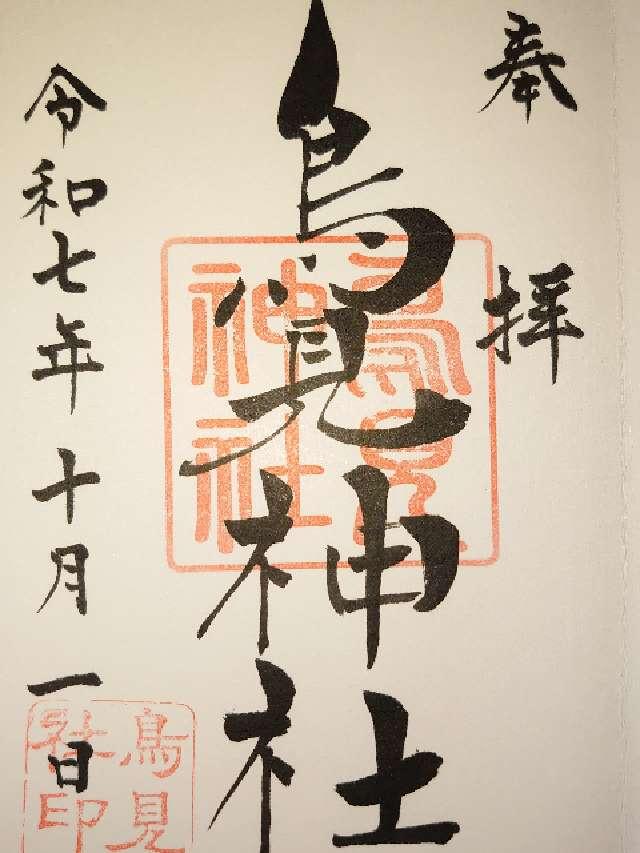 奉拝
鳥見神社
鳥見神社
令和七年十月一日
鳥見社印